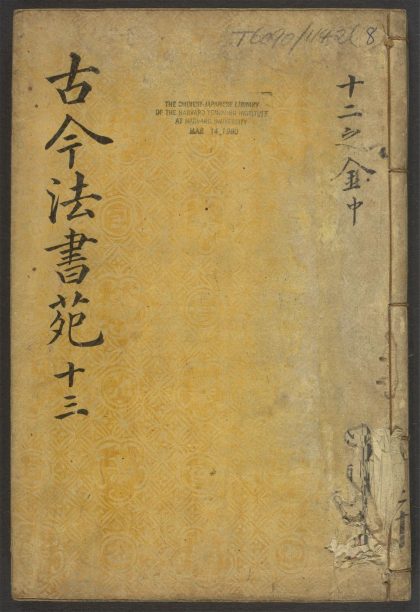 T6090/1143(8)
十二之金中
THE CHINESE-JAPANESE LIBRARY
OF THE HARVARD-YENCHING INSTITUTE
AT HARVARD UNIVERSITY
MAR 14 1960
古今法書苑 十三